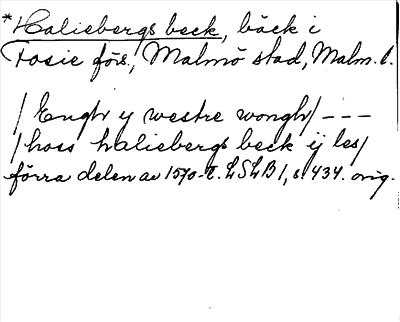 *Haliebergs beck, bäck i
Fosie förs., Malmö stad, Malm. l.
/Enghr y westre wongh/ ---
/hoss haliebergs beck ij les/
förra delen av 1570-t. LSLB 1, s. 434. orig.